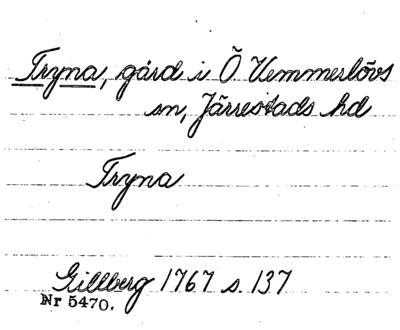 Tryna, gård i Ö Vemmerlövs
sn, Järrestads hd
Tryna
Gillberg 1767 s. 137
Nr 5470.